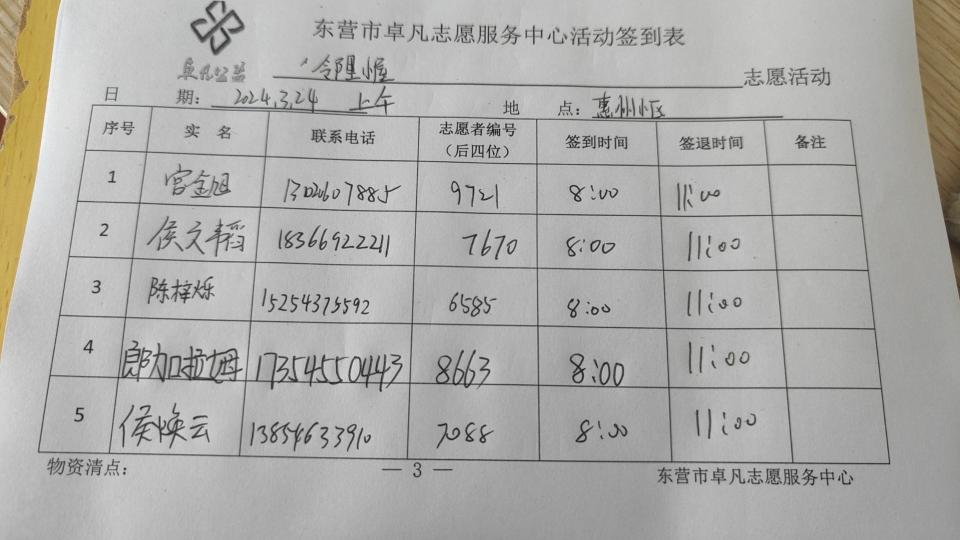 东营市卓凡志愿服务中心活动签到表
卓凡公益 邻里小屋 志愿活动
日期：2024.3.24 上午 地点：惠州小区
序号 实名 联系电话 志愿者编号（后四位） 签到时间 签退时间 备注
1 宫金旭 13026607885 9721 8:00 11:00
2 侯文韬 18366922211 7670 8:00 11:00
3 陈梓烁 15254375592 6585 8:00 11:00
4 郎加拉姆 17354550443 8663 8:00 11:00
5 侯焕云 13854633910 7088 8:00 11:00
物资清点： — 3 — 东营市卓凡志愿服务中心